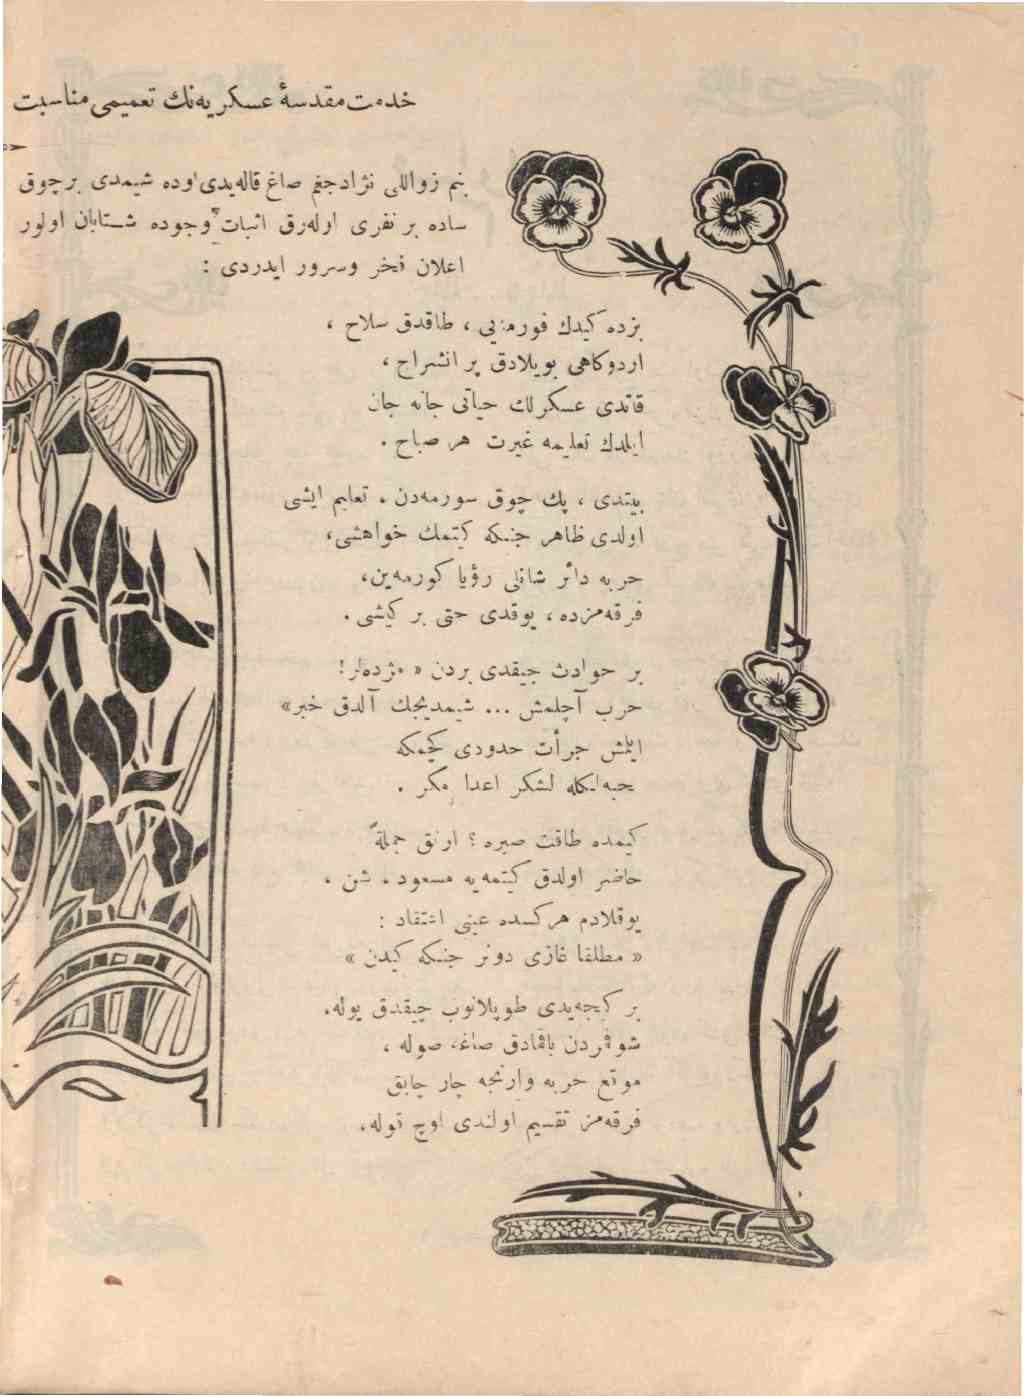 خدمت مقدسهٔ عسكريه‌نك تعميمى مناسبت
بنم زواللى نژادجغم صاغ قاله‌يدى اوده شيمدى بر چوق
ساده بر نفرى اوله‌رق اثبات وجوده شتابان اولور
اعلان فخر وسرور ايدردى :
بزده كيدك فورمه‌يى ، طاقدق سلاح ،
اردوكاهى بويلادق پر انشراح ،
قاتدى عسكرلك حياتى جانه جان
ايلدك تعليمه غيرت هر صباح .
بيتدى ، پك چوق سورمه‌دن ، تعليم ايشى
اولدى ظاهر جنكه كيتمك خواهشى،
حربه دائر شانلى رؤيا كورمه‌ين،
فرقه‌مزده ، يوقدى حتى بر كيشى .
بر حوادث چيقدى بردن « مژده‌لر !
حرب آچلمش ... شيمديجك آلدق خبر»
ايلمش جرأت حدودى كچمكه
حيله‌ايكله لشكر اعدا مكر .
كيمده طاقت صبره ؟ ارتق جملةً
حاضر اولدق كيتمه‌يه مسعود ، شن ،
يوقلادم هركسده عينى اعتقاد :
« مطلقا غازى دونر جنكه كيدن »
بر كيجه‌يدى طوپلانوب چيقدق يوله،
شوقردن باقمادق صاغه صوله ،
موقع حربه وارنجه چار چابق
فرقه‌مز تقسيم اولندى اوچ قوله،